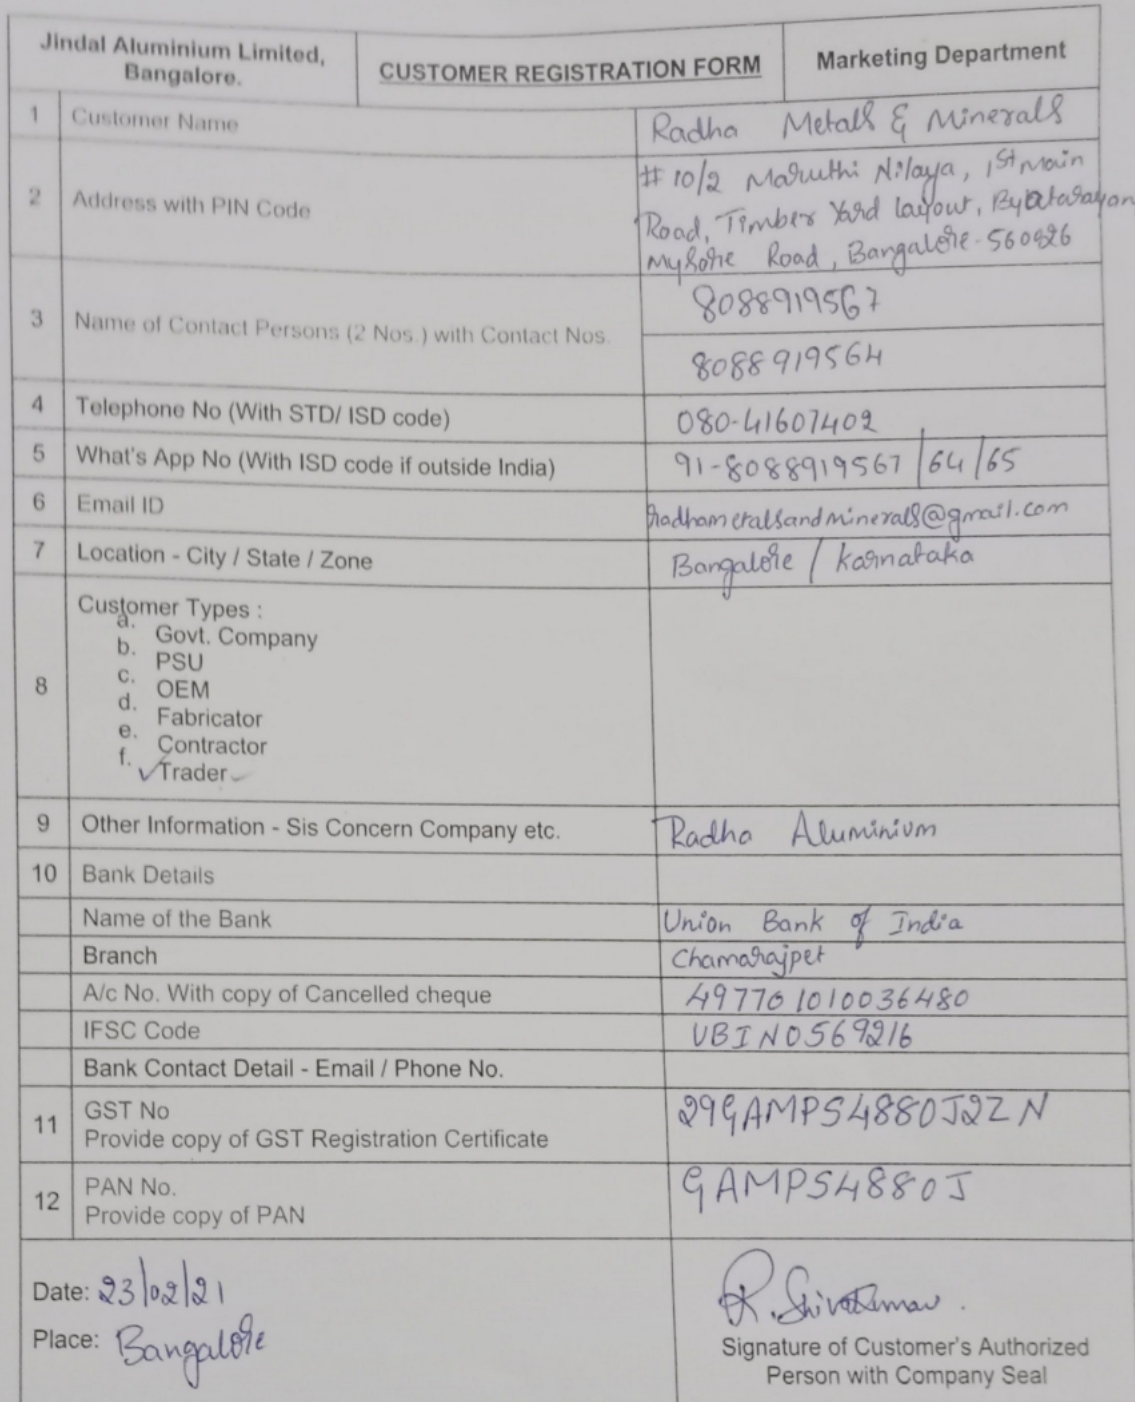 Jindal Aluminium Limited,
Bangalore.
CUSTOMER REGISTRATION FORM
Marketing Department
1 Customer Name Radha Metals & Minerals
2 Address with PIN Code
#10/2 Maruthi Nilaya, 1st Main
Road, Timber Yard layout, Byatarayan
Mysore Road, Bangalore-560026
3 Name of Contact Persons (2 Nos.) with Contact Nos.
8088919567
8088919564
4 Telephone No (With STD/ ISD code) 080-41607402
5 What's App No (With ISD code if outside India) 91-8088919567/64/65
6 Email ID radhametalsandminerals@gmail.com
7 Location - City / State / Zone Bangalore / Karnataka
8 Customer Types :
a. Govt. Company
b. PSU
c. OEM
d. Fabricator
e. Contractor
f. ✓Trader
9 Other Information - Sis Concern Company etc. Radha Aluminium
10 Bank Details
Name of the Bank Union Bank of India
Branch Chamarajpet
A/c No. With copy of Cancelled cheque 497701010036480
IFSC Code UBIN0569216
Bank Contact Detail - Email / Phone No.
11 GST No
Provide copy of GST Registration Certificate
29GAMPS4880J2ZN
12 PAN No.
Provide copy of PAN
GAMPS4880J
Date: 23/02/21
Place: Bangalore
R. Shivakumar.
Signature of Customer's Authorized
Person with Company Seal